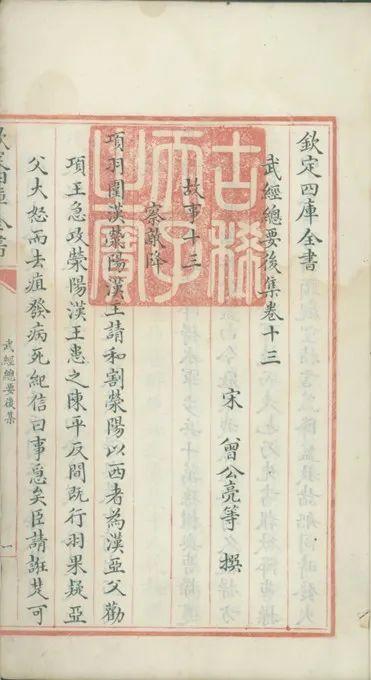 欽定四庫全書
武經總要後集卷十三
宋 曾公亮等 撰
故事十三
察敵降
項羽圍漢滎陽漢王請和割滎陽以西者為漢亞父勸
項王急攻滎陽漢王患之陳平反間既行羽果疑亞
父大怒而去疽發病死紀信曰事急矣臣請誑楚可
古稀
天子
之寶
欽定四庫全書
武經總要後集
一